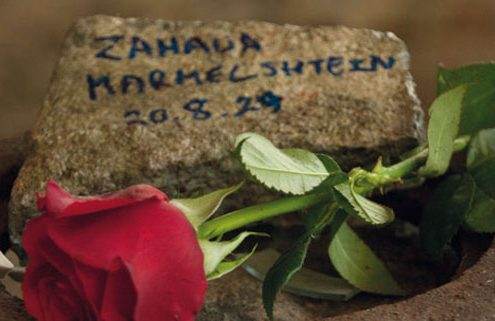 ZAHAVA
MARMELSHTEIN
20.8.29